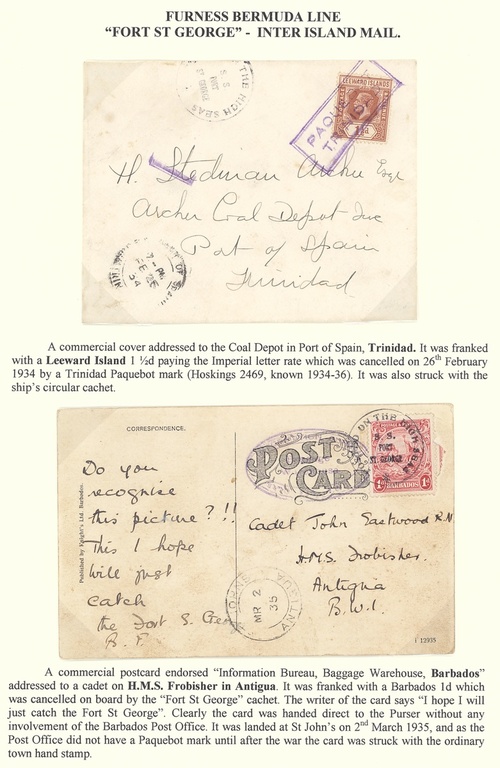 FURNESS BERMUDA LINE
“FORT ST GEORGE” - INTER ISLAND MAIL.
ON THE HIGH SEAS
S.S.
FORT
ST GEORGE
LEEWARD ISLANDS
PAQU
H. Stedman Archer Esqr
Archer Coal Depot Inc
Port of Spain
Trinidad
7 - PM
FE 26
34
A commercial cover addressed to the Coal Depot in Port of Spain, Trinidad. It was franked
with a Leeward Island 1 ½d paying the Imperial letter rate which was cancelled on 26th February
1934 by a Trinidad Paquebot mark (Hoskings 2469, known 1934-36). It was also struck with the
ship's circular cachet.
CORRESPONDENCE.
POST
CARD
ON THE HIGH SEAS
S. S.
FORT
ST GEORGE
1d BARBADOS 1d
Published by Knight's Ltd. Barbados.
Do you
recognise
this picture?!!
This I hope
will just
catch
the Fort S. Geo
B. F.
Cadet John Eastwood R.N
H.M.S. Frobisher.
Antigua
B.W.I.
ST JOHNS
MR 2
35
ANTIGUA
I 12935
A commercial postcard endorsed “Information Bureau, Baggage Warehouse, Barbados”
addressed to a cadet on H.M.S. Frobisher in Antigua. It was franked with a Barbados 1d which
was cancelled on board by the “Fort St George” cachet. The writer of the card says “I hope I will
just catch the Fort St George”. Clearly the card was handed direct to the Purser without any
involvement of the Barbados Post Office. It was landed at St John's on 2nd March 1935, and as the
Post Office did not have a Paquebot mark until after the war the card was struck with the ordinary
town hand stamp.